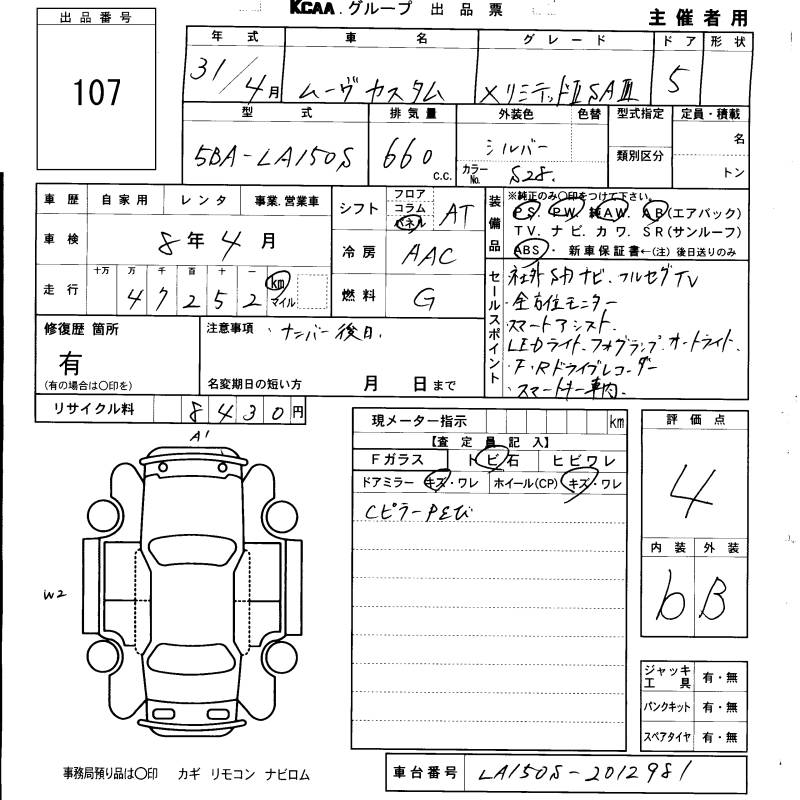 KCAA グループ 出品票
主催者用
出品番号
107
年式 車名 グレード ドア 形状
31/4月 ムーヴ カスタム XリミテッドⅡSAⅢ 5
型式 排気量 外装色 色替 型式指定 定員・積載
5BA-LA150S 660 c.c. シルバー 類別区分 名
カラーNo. S28. トン
車歴 自家用 レンタ 事業.営業車
車検 8年4月
走行 十万 万 千 百 十 一 km マイル
4 7 2 5 2
シフト フロア コラム パネル AT
冷房 AAC
燃料 G
装備品 ※純正のみ○印をつけて下さい。
PS. PW. 純AW. AB(エアバック)
TV. ナビ. カワ. SR(サンルーフ)
ABS・ 新車保証書←(注) 後日送りのみ
セールスポイント
・社外SDナビ. フルセグTV
・全方位モニター
・スマートアシスト.
・LEDライト.フォグランプ.オートライト.
・F,Rドライブレコーダー
・スマートキー車内.
修復歴 箇所
有
(有の場合は○印を)
注意事項 ・ナンバー後日.
名変期日の短い方 月 日まで
リサイクル料 8430円
現メーター指示 km
【査定員記入】
Fガラス トビ石 ヒビワレ
ドアミラー キズ・ワレ ホイール(CP) キズ・ワレ
CピラーPとび
A1
W2
評価点
4
内装 外装
b B
ジャッキ工具 有・無
パンクキット 有・無
スペアタイヤ 有・無
事務局預り品は○印 カギ リモコン ナビロム
車台番号 LA150S-2012981